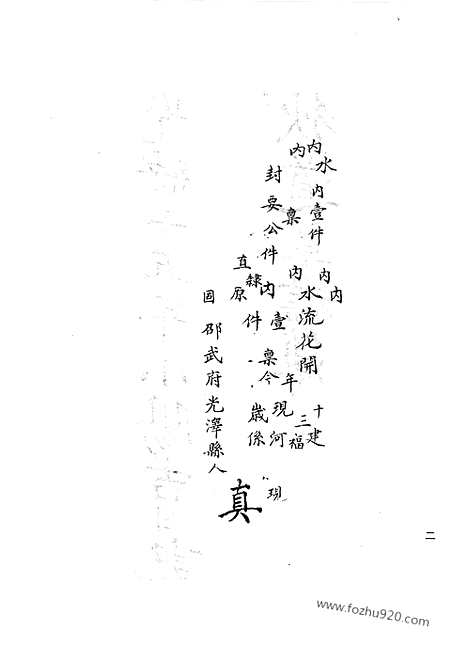 内水内壹件内内十建
内稟内水流花開年三福
封要公件内壹稟今現河現
直隸原件歲係
真
邵武府光澤縣人
二
www.fozhu920.com